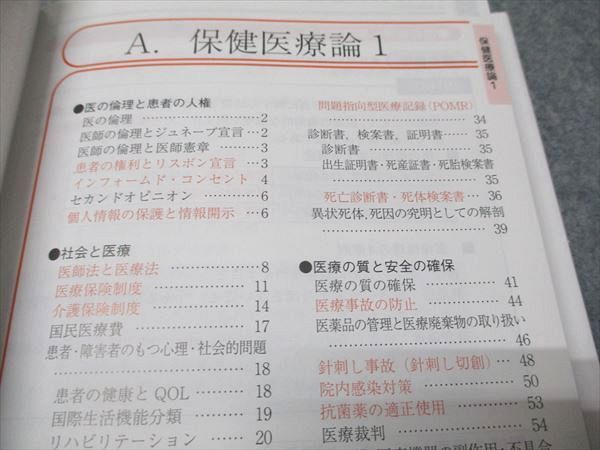 A. 保健医療論1
保健医療論1
●医の倫理と患者の人権
医の倫理 ……………… 2
医師の倫理とジュネーブ宣言 … 2
医師の倫理と医師憲章 ……… 3
患者の権利とリスボン宣言 … 3
インフォームド・コンセント 4
セカンドオピニオン ……… 6
個人情報の保護と情報開示 … 6
●社会と医療
医師法と医療法 ………… 8
医療保険制度 ………… 11
介護保険制度 ………… 14
国民医療費 ………… 17
患者・障害者のもつ心理・社会的問題
………………… 18
患者の健康とQOL ……… 18
国際生活機能分類 ……… 19
リハビリテーション ……… 20
問題指向型医療記録(POMR)
………………… 34
診断書, 検案書, 証明書…… 35
診断書 ………… 35
出生証明書・死産証書・死胎検案書
………………… 35
死亡診断書・死体検案書… 36
異状死体, 死因の究明としての解剖
………………… 39
●医療の質と安全の確保
医療の質の確保 ……… 41
医療事故の防止 ……… 44
医薬品の管理と医療廃棄物の取り扱い
………………… 46
針刺し事故(針刺し切創)… 48
院内感染対策 ………… 50
抗菌薬の適正使用 ……… 53
医療裁判 ………… 54